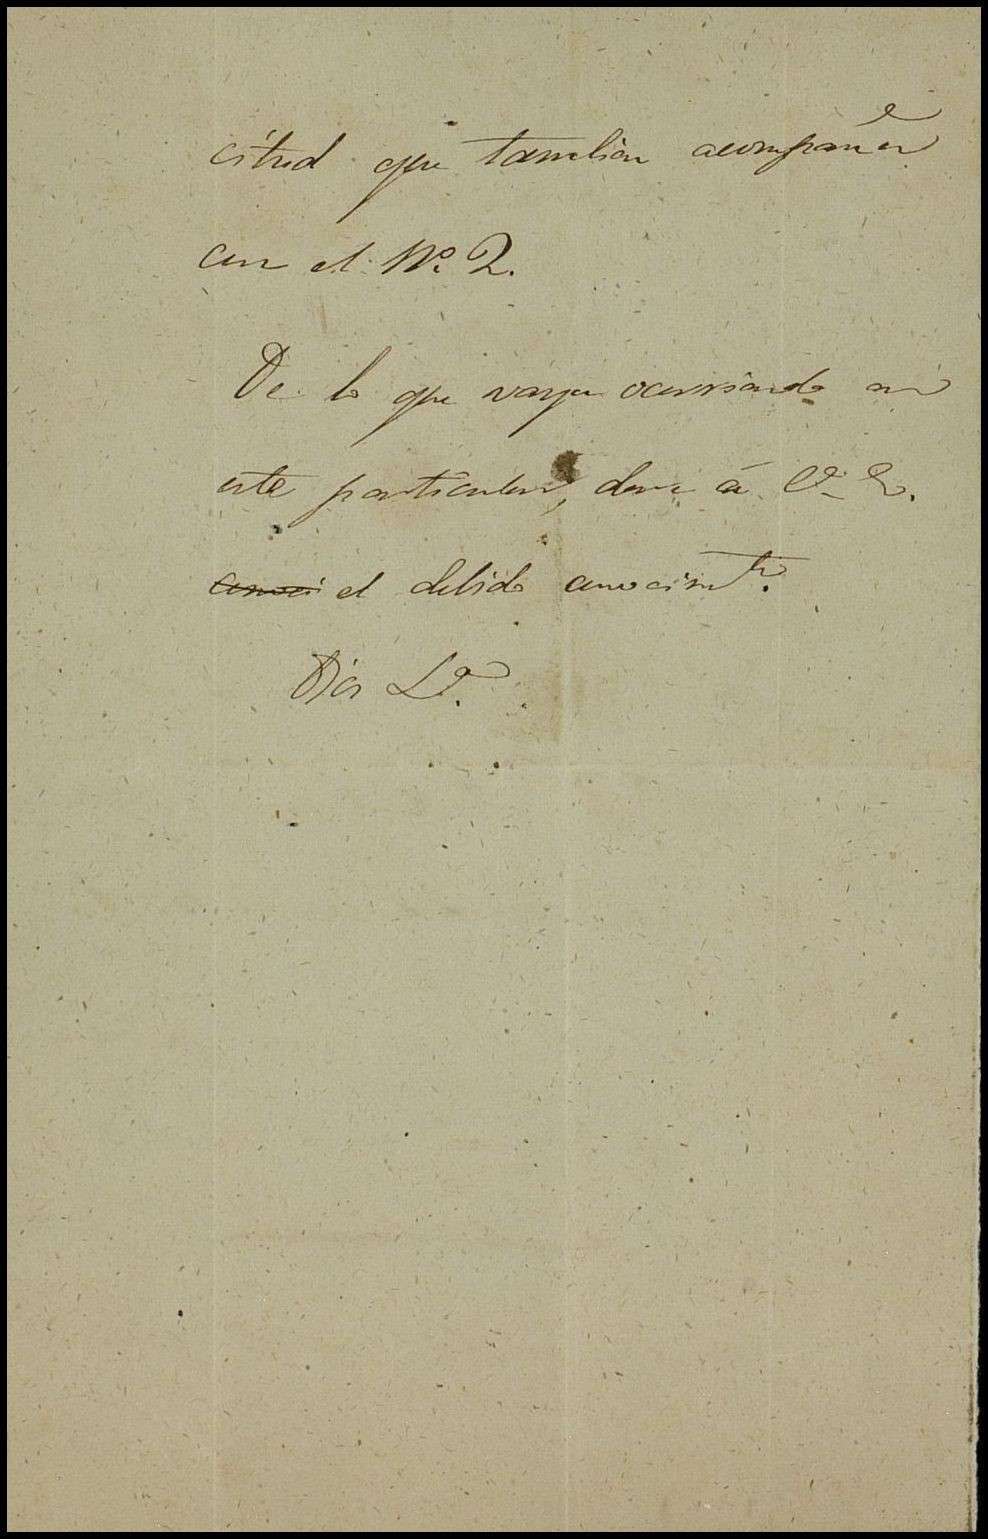 citud que tambien acompaño
con el Nº. 2.
De lo que vaya ocurriendo en
este particular, daré á V. E.
conoci el debido conocimto.
Dios &a.